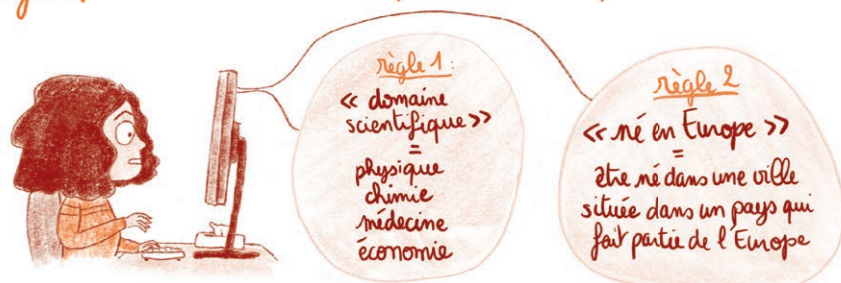 règle 1:
« domaine
scientifique »
=
physique
chimie
médecine
économie
règle 2
« né en Europe »
=
être né dans une ville
située dans un pays qui
fait partie de l'Europe